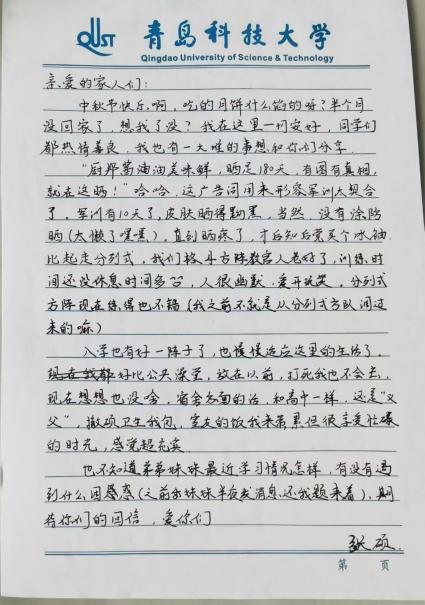 QUST 青岛科技大学
Qingdao University of Science & Technology
亲爱的家人们:
中秋节快乐啊,吃的月饼什么馅的呀?半个月
没回家了,想我了没?我在这里一切安好,同学们
都热情善良,我也有一大堆的事想和你们分享.
"厨邦酱油美味鲜,晒足180天,有图有真相,
就在这晒!"哈哈,这广告词用来形容军训太契合
了,军训有10天了,皮肤晒得黝黑,当然,没有涂防
晒(太懒了嘿嘿),直到晒疼了,才后知后觉买个冰袖
比起走分列式,我们格斗方阵教官人卷好了,训练时
间还没休息时间多,人很幽默.爱开玩笑,分列式
方阵现在练得也不错(我之前不就是从分列式方队调过
来的嘛)
入学也有好一阵子了,也慢慢适应这里的生活了.
现在我都好比公共澡堂,放在以前,打死我也不会去,
现在想想也没啥,宿舍方面的话,和高中一样,这是"义
父",撤硕卫生我包,室友的饭我来带累但很享受忙碌
的时光,感觉超充实
也不知道弟弟妹妹最近学习情况怎样,有没有遇
到什么困惑(之前妹妹半夜发消息还我题来着),期
待你们的回信,爱你们
张硕.
第 页